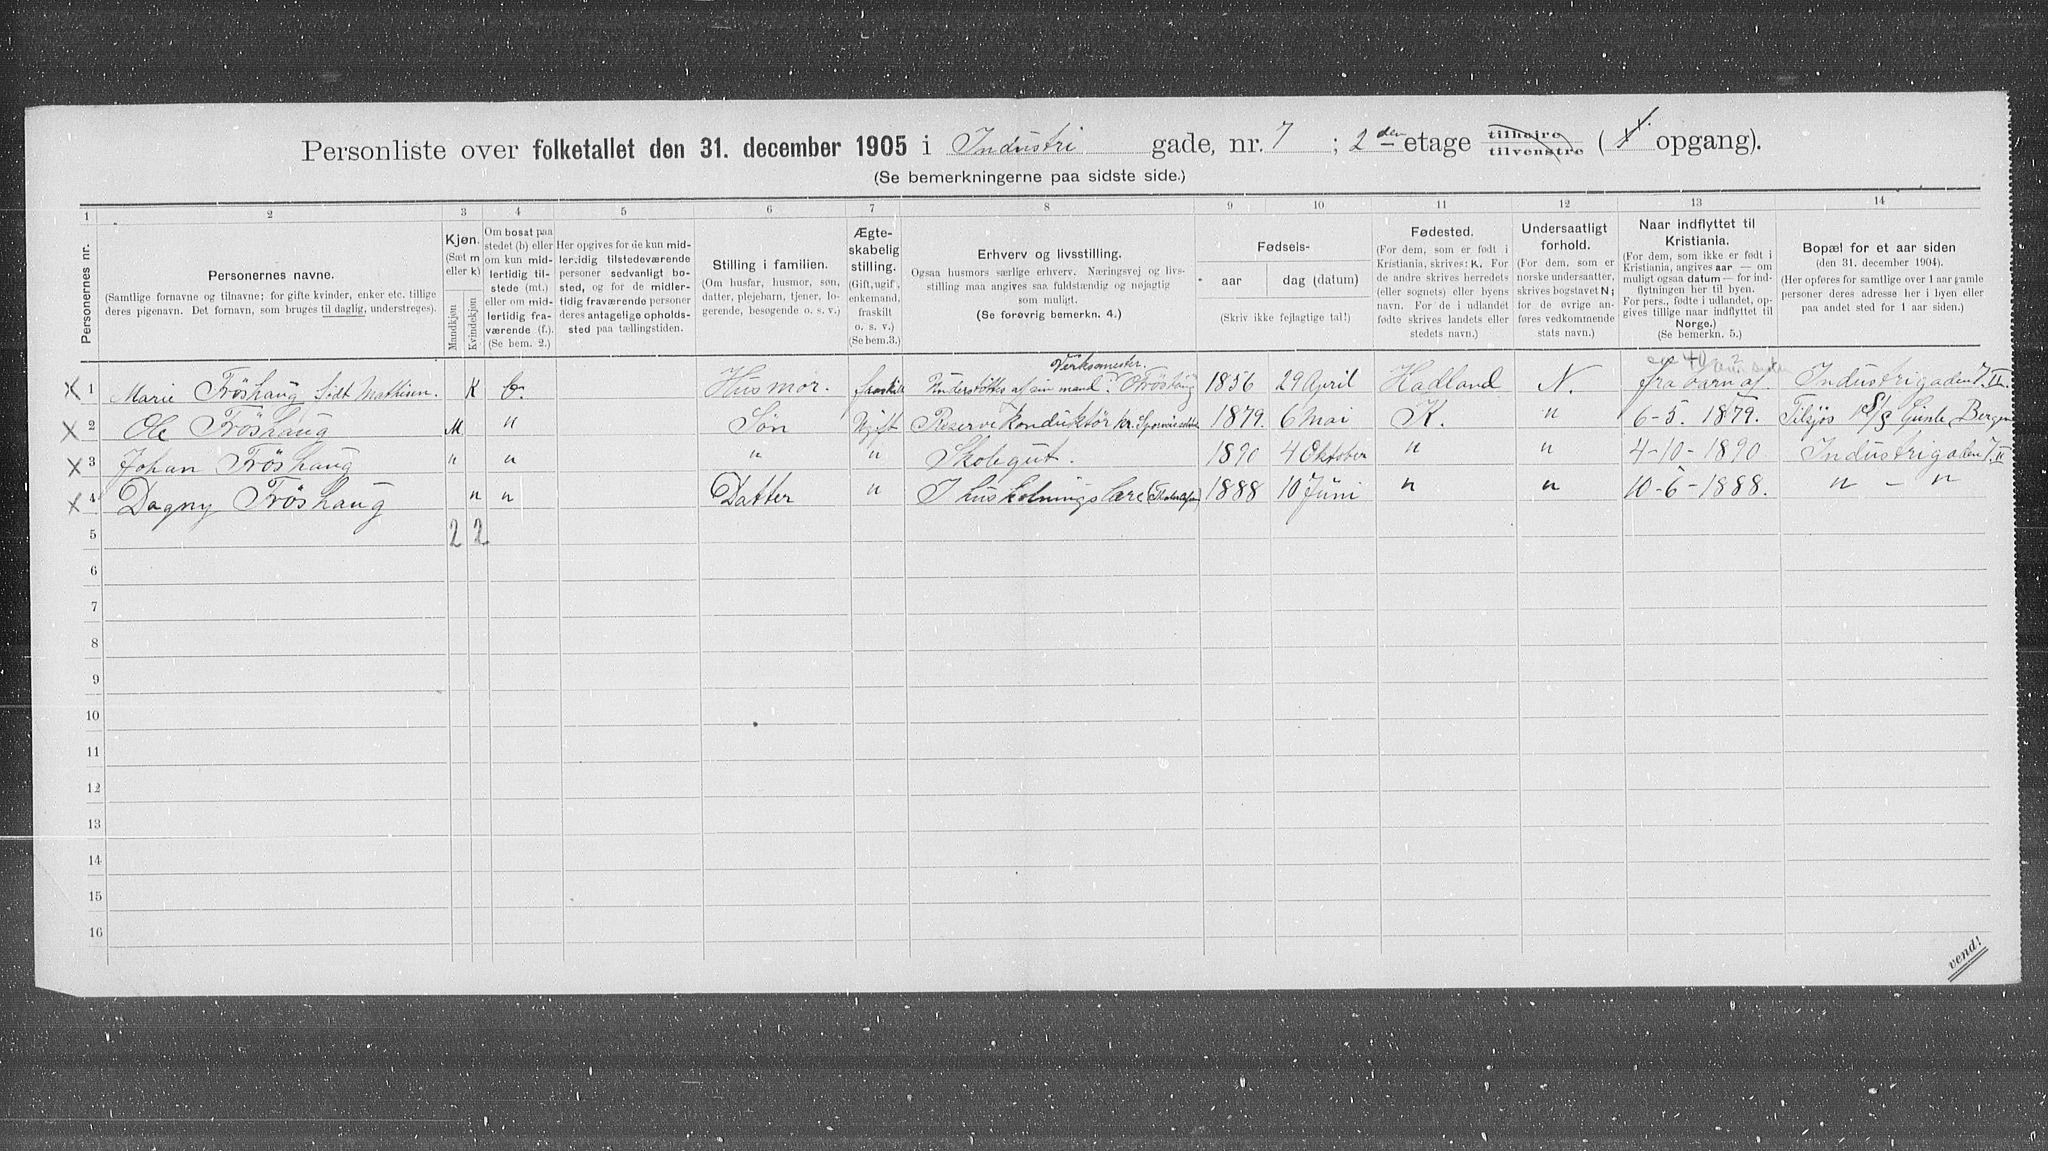 Personliste over folketallet den 31. december 1905 i Industri gade, nr. 7 ; 2 den etage tilhøire tilvenstre ( opgang).
(Se bemerkningerne paa sidste side.)
1 2 3 4 5 6 7 8 9 10 11 12 13 14
Personernes nr.
Personernes navne.
(Samtlige fornavne og tilnavne; for gifte kvinder, enker etc. tillige
deres pigenavn. Det fornavn, som bruges til daglig, understreges).
Kjøn.
(Sæt m
eller k)
Mandkjøn
Kvindekjøn
Om bosat paa
stedet (b) eller
om kun mid-
lertidig til-
stede (mt.)
eller om mid-
lertidig fra-
værende (f.).
(Se bem. 2.)
Her opgives for de kun mid-
lertidig tilstedeværende
personer sedvanlig bo-
sted, og for de midler-
tidig fraværende personer
deres antagelige opholds-
sted paa tællingstiden.
Stilling i familien.
(Om husfar, husmor, søn,
datter, plejebarn, tjener, lo-
gerende, besøgende o. s. v.)
Ægte-
skabelig
stilling.
(Gift, ugift,
enkemand,
fraskilt
o. s. v.)
(Se bem.3.)
Erhverv og livsstilling.
Ogsaa husmors særlige erhverv. Næringsvej og livs-
stilling maa angives saa fuldstændig og nøjagtig
som muligt.
(Se forøvrig bemerkn. 4.)
Fødsels-
aar
dag (datum)
(Skriv ikke fejlagtige tal!)
Fødested.
(For dem, som er født i
Kristiania, skrives: K. For
de andre skrives herredets
(eller sognets) eller byens
navn. For de i udlandet
fødte skrives landets eller
stedets navn.)
Undersaatligt
forhold.
(For dem, som er
norske undersaatter,
skrives bogstavet N;
for de øvrige an-
føres vedkommende
stats navn.)
Naar indflyttet til
Kristiania.
(For dem, som ikke er født i
Kristiania, angives aar — om
muligt ogsaa datum — for ind-
flytningen her til byen.
For pers., fødte i udlandet, op-
gives tillige naar indflyttet til
Norge.)
(Se bemerkn. 5.)
Bopæl for et aar siden
(den 31. december 1904).
(Her opføres for samtlige over 1 aar gamle
personer deres adresse her i byen eller
paa andet sted for 1 aar siden.)
Verksmester.
X 1 Marie Fröshaug født Mathisen. K b. Husmor. fraskilt Understöttes af sin mand O Fröshaug 1856 29 April Hadland N. fra barn af. Industrigaden 7. II.
X 2 Ole Fröshaug M " Søn Ugift Reserve Konduktör kr. 1879. 6 Mai K. " 6-5. 1879. Bergen
X 3 Johan Fröshaug " " " " Skolegut. 1890 4 Oktober " " 4-10-1890. Industrigaden 7 II
X 4 Dagny Fröshaug " " Datter " I husholningslære 1888 10 Juni " " 10-6-1888. " - "
5 2 2
6
7
8
9
10
11
12
13
14
15
16
vend!